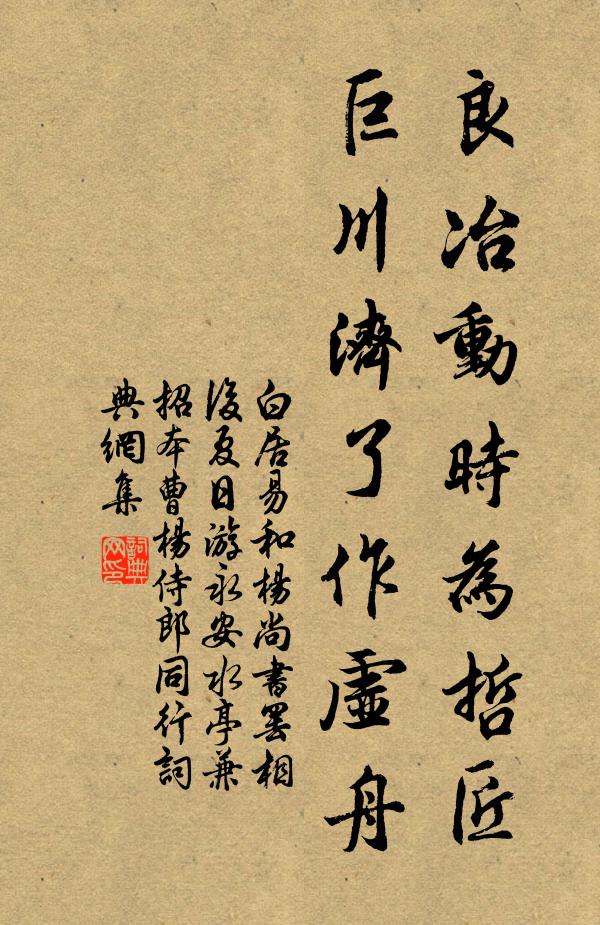 良冶動時為哲匠
巨川濟了作虛舟
白居易和楊尚書罷相
後夏日游永安水亭兼
招本曹楊侍郎同行詞
典網集
詞典
网印